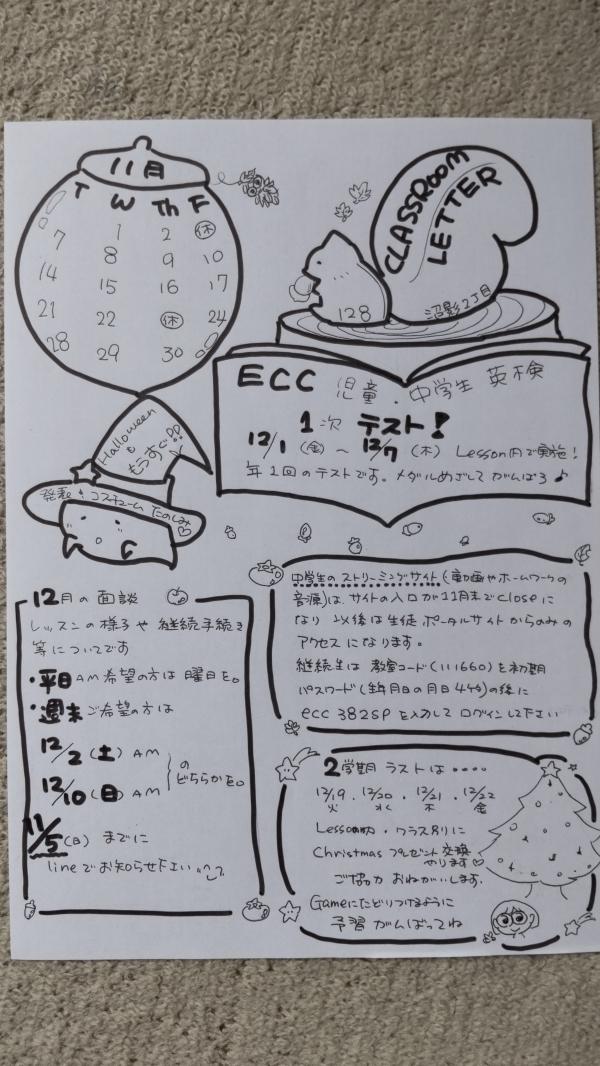 11月
T W Th F
1 2 休
7 8 9 10
14 15 16 17
21 22 休 24
28 29 30
CLASSROOM
LETTER
128 沼影2丁目
ECC 児童・中学生 英検
1次 テスト!
12/1 (金) ~ 12/7 (木) Lesson内で実施!
年1回のテストです。メダルめざしてがんばろ♪
Halloween
も
もうすぐ!!
発表! コスチューム たのしみ♡
12月の面談
レッスンの様子や継続手続き
等についてです
・平日AM希望の方は曜日を。
・週末ご希望の方は
12/2(土)AM
12/10(日)AM
の
どちらかを。
11/5(日)までに
lineでお知らせ下さい
中学生のストリーミングサイト(動画やホームワークの
音源)は、サイトの入口が11月末でcloseに
なり 以後は生徒ポータルサイトからのみの
アクセスになります。
継続生は 教室コード(111660)を初期
パスワード(生年月日の月日4ケタ)の後に
ecc382sp を入力して ログインして下さい
2学期 ラストは・・・・
12/19 . 12/20 . 12/21 . 12/22
火 水 木 金
Lesson内・クラス別りに
Christmas プレゼント交換
やります♡
ご協力 おねがいします.
Gameにたどりつけるように
予習 がんばってね